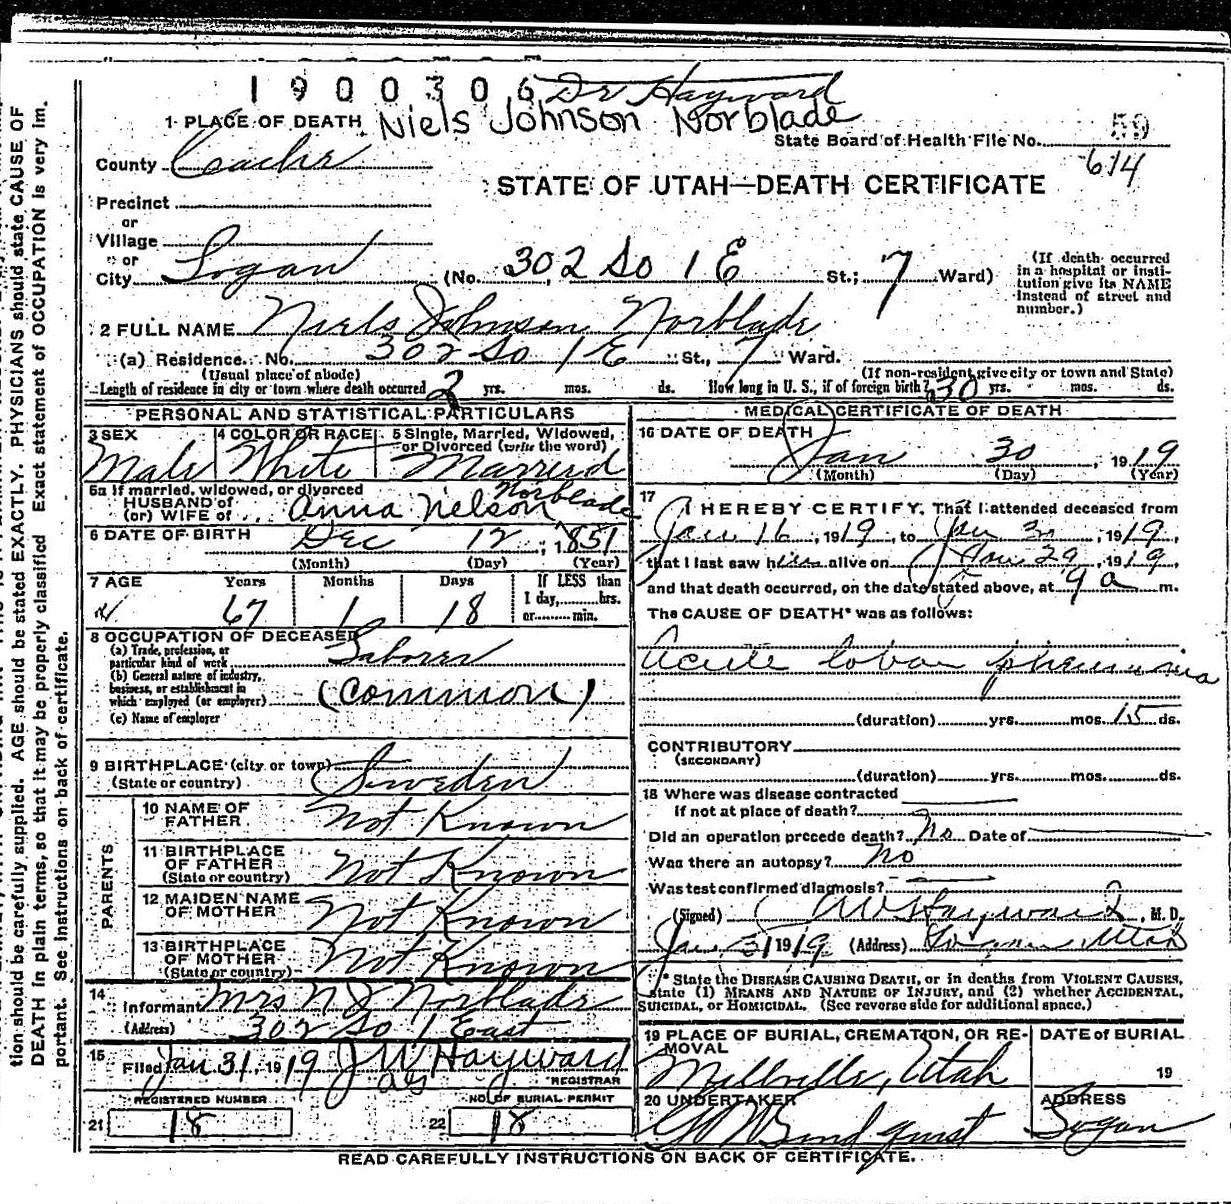 1900306 Dr Hayward
1 PLACE OF DEATH Niels Johnson Norblade
State Board of Health File No. 59
614
County Cache
STATE OF UTAH—DEATH CERTIFICATE
Precinct
or
Village
or
City Logan (No. 302 So 1 E St.; 7 Ward)
(If death occurred in a hospital or institution give its NAME instead of street and number.)
2 FULL NAME Niels Johnson Norblade
(a) Residence. No. 302 So 1 E St., 7 Ward.
(Usual place of abode) (If non-resident give city or town and State)
Length of residence in city or town where death occurred 2 yrs. mos. ds. How long in U. S., if of foreign birth? 30 yrs. mos. ds.
PERSONAL AND STATISTICAL PARTICULARS
3 SEX 4 COLOR OR RACE 5 Single, Married, Widowed, or Divorced (write the word)
Male White Married
5a If married, widowed, or divorced
HUSBAND of
(or) WIFE of Anna Nelson Norblade
6 DATE OF BIRTH Dec 12, 1851
(Month) (Day) (Year)
7 AGE Years Months Days If LESS than
1 day, hrs.
or min.
67 1 18
8 OCCUPATION OF DECEASED
(a) Trade, profession, or
particular kind of work Laborer
(b) General nature of industry,
business, or establishment in
which employed (or employer) (common)
(c) Name of employer
9 BIRTHPLACE (city or town)
(State or country) Sweden
PARENTS
10 NAME OF
FATHER Not Known
11 BIRTHPLACE
OF FATHER
(State or country) Not Known
12 MAIDEN NAME
OF MOTHER Not Known
13 BIRTHPLACE
OF MOTHER
(State or country) Not Known
14 Informant Mrs N J Norblade
(Address) 302 So 1 East
15 Filed Jan 31, 1919 J W Hayward
REGISTRAR
REGISTERED NUMBER NO. OF BURIAL PERMIT
21 18 22 18
MEDICAL CERTIFICATE OF DEATH
16 DATE OF DEATH
Jan 30, 1919
(Month) (Day) (Year)
17 I HEREBY CERTIFY, That I attended deceased from
Jan 16, 1919, to Jan 30, 1919,
that I last saw him alive on Jan 29, 1919,
and that death occurred, on the date stated above, at 9 a m.
The CAUSE OF DEATH* was as follows:
Acute lobar pneumonia
(duration) yrs. mos. 15 ds.
CONTRIBUTORY
(SECONDARY)
(duration) yrs. mos. ds.
18 Where was disease contracted
if not at place of death?
Did an operation precede death? No Date of
Was there an autopsy? No
Was test confirmed diagnosis?
(Signed) J W Hayward, M. D.
Jan 31 1919 (Address) Logan Utah
* State the DISEASE CAUSING DEATH, or in deaths from VIOLENT CAUSES,
state (1) MEANS AND NATURE OF INJURY, and (2) whether ACCIDENTAL,
SUICIDAL, or HOMICIDAL. (See reverse side for additional space.)
19 PLACE OF BURIAL, CREMATION, OR RE-
MOVAL
DATE of BURIAL
Millville, Utah 19
20 UNDERTAKER ADDRESS
Lindquist Logan
READ CAREFULLY INSTRUCTIONS ON BACK OF CERTIFICATE.
tion should be carefully supplied. AGE should be stated EXACTLY. PHYSICIANS should state CAUSE OF
DEATH in plain terms, so that it may be properly classified. Exact statement of OCCUPATION is very im-
portant. See instructions on back of certificate.